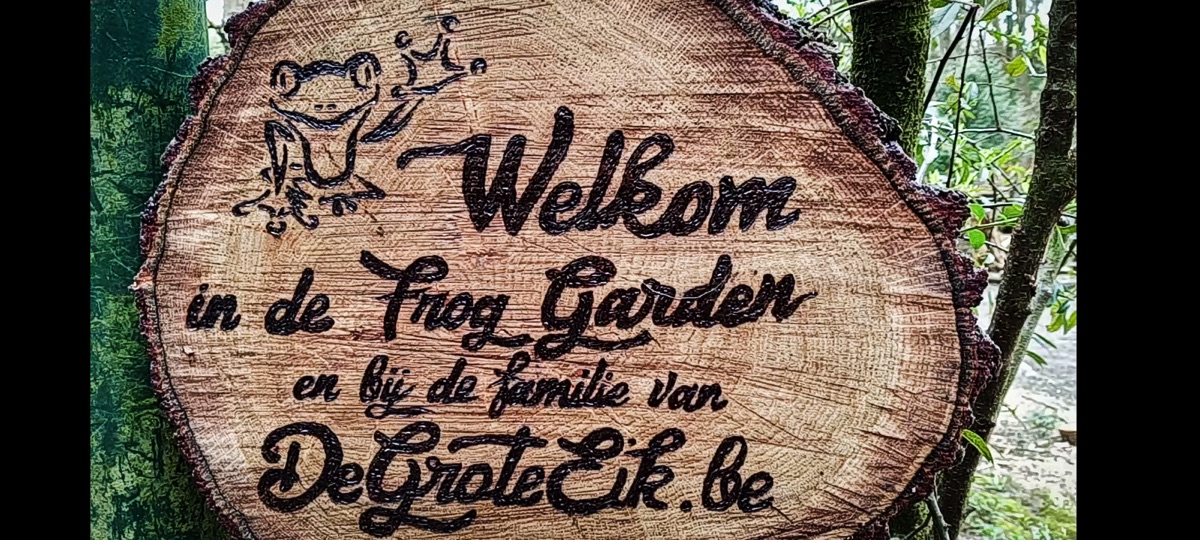 Welkom
in de Frog Garden
en bij de familie van
DeGroteEik.be